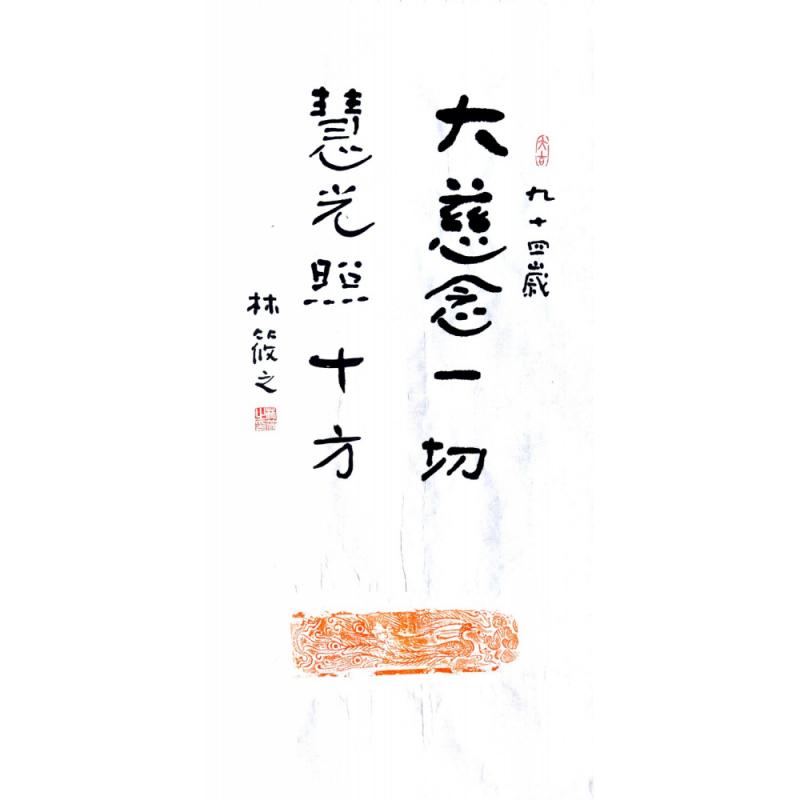 九十四歲
大慈念一切
慧光照十方
林筱之